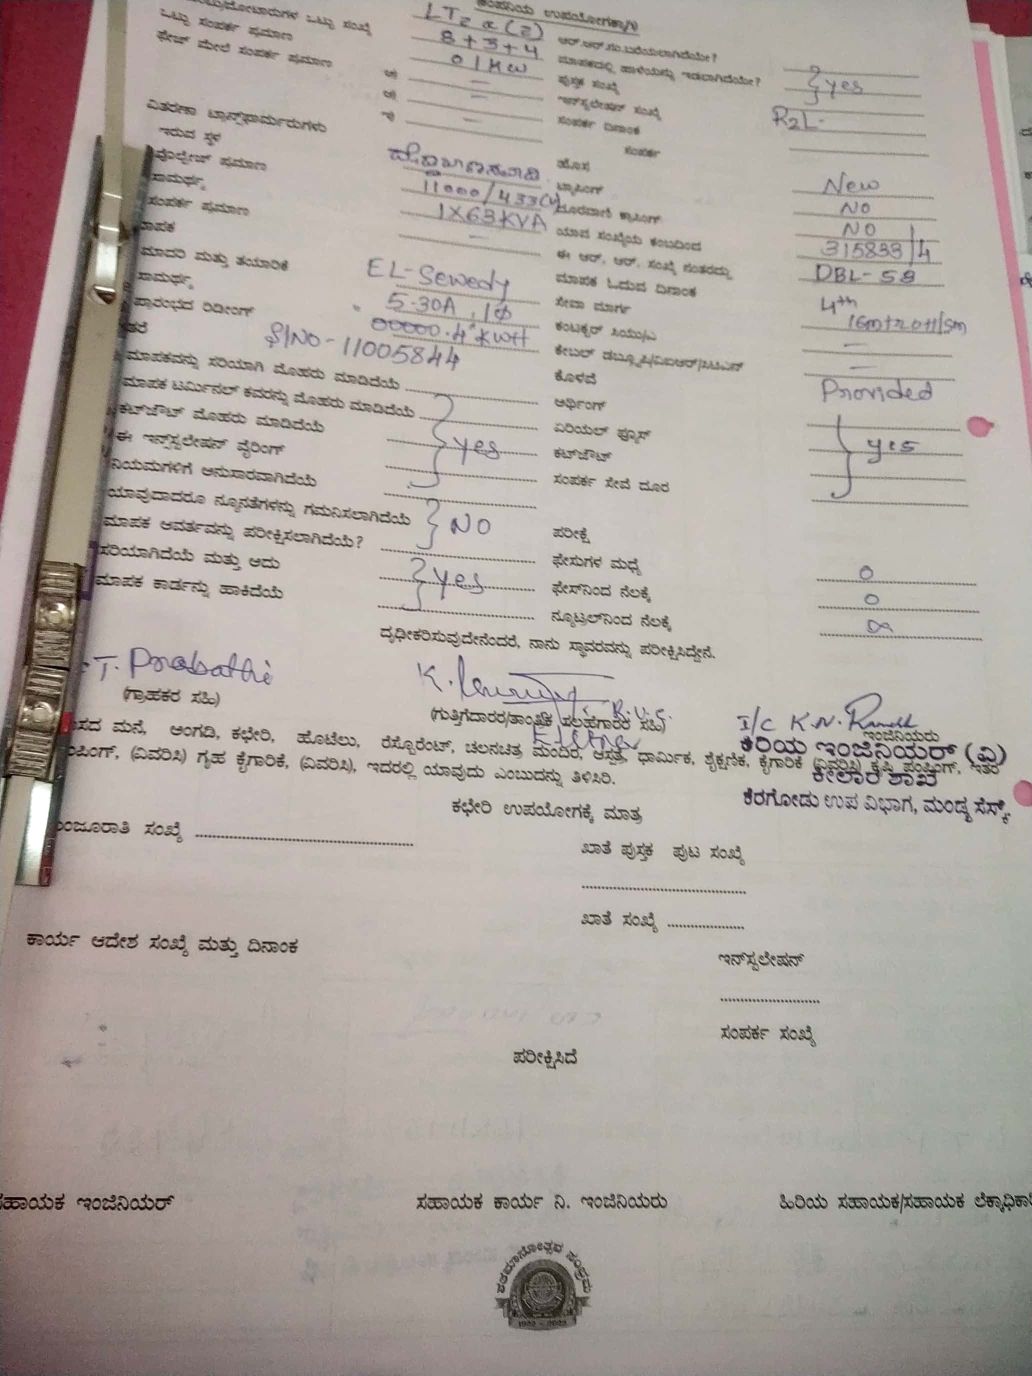 ಉಪಯೋಗಕ್ಕಾಗಿ
ಒಟ್ಟು ಸಂಖ್ಯೆ LT2 a (2) ಆರ್.ಆರ್.ನಂ.ಬರೆಯಲಾಗಿದೆಯೇ?
ಒಟ್ಟು ಸಂಪರ್ಕ ಪ್ರಮಾಣ 8+3+4 ಮಾಪಕದಲ್ಲಿ ಹಾಳೆಯನ್ನು ಇಡಲಾಗಿದೆಯೇ? } yes
ಫೇಜ್ ಮೇಲೆ ಸಂಪರ್ಕ ಪ್ರಮಾಣ 01KW ಪುಸ್ತಕ ಸಂಖ್ಯೆ
ಇನ್‌ಸ್ಟಲೇಷನ್ ಸಂಖ್ಯೆ R2L-
ಸಂಪರ್ಕ ದಿನಾಂಕ
ವಿತರಣಾ ಟ್ರಾನ್ಸ್‌ಫಾರ್ಮರುಗಳು ಸಂಪರ್ಕ
ಇರುವ ಸ್ಥಳ ಹೊಸ New
ವೋಲ್ಟೇಜ್ ಪ್ರಮಾಣ 11000/433(V) ಟ್ಯಾಪಿಂಗ್ NO
ಸಾಮರ್ಥ್ಯ 1X63KVA ದೂರವಾಣಿ ಕ್ರಾಸಿಂಗ್ NO
ಸಂಪರ್ಕ ಪ್ರಮಾಣ – ಯಾವ ಸಂಖ್ಯೆಯ ಕಂಬದಿಂದ 315833/4
ಮಾಪಕ ಈ ಆರ್. ಆರ್. ಸಂಖ್ಯೆ ನಂತರದ್ದು DBL-58
ಮಾದರಿ ಮತ್ತು ತಯಾರಿಕೆ EL-Sewedy ಮಾಪಕ ಓದುವ ದಿನಾಂಕ 4th
ಸಾಮರ್ಥ್ಯ 5-30A, 1Φ ಸೇವಾ ಮಾರ್ಗ
ಪ್ರಾರಂಭದ ರಿಡೀಂಗ್ 00000.4 KWH ಕಂಟಕ್ಟರ್ ಸಿಯು/ಎ –
S/NO-11005844 ಕೇಬಲ್ ಡಬ್ಲ್ಯೂಪಿ/ವಿಐಆರ್/ಪಿಟಿಎನ್ –
ಮಾಪಕವನ್ನು ಸರಿಯಾಗಿ ಮೊಹರು ಮಾಡಿದೆಯೆ ಕೊಳವೆ
ಮಾಪಕ ಟರ್ಮಿನಲ್ ಕವರನ್ನು ಮೊಹರು ಮಾಡಿದೆಯೆ ಆರ್ಥಿಂಗ್ Provided
ಕಟ್‌ಔಟ್ ಮೊಹರು ಮಾಡಿದೆಯೆ } yes ಏರಿಯಲ್ ಫ್ಯೂಸ್
ಈ ಇನ್‌ಸ್ಟಲೇಷನ್ ವೈರಿಂಗ್ ಕಟ್‌ಔಟ್ } yes
ನಿಯಮಗಳಿಗೆ ಅನುಸಾರವಾಗಿದೆಯೆ ಸಂಪರ್ಕ ಸೇವೆ ದೂರ
ಯಾವುದಾದರೂ ನ್ಯೂನತೆಗಳನ್ನು ಗಮನಿಸಲಾಗಿದೆಯೆ } NO ಪರೀಕ್ಷೆ
ಮಾಪಕ ಆವರ್ತವನ್ನು ಪರೀಕ್ಷಿಸಲಾಗಿದೆಯೆ? ಫೇಸುಗಳ ಮಧ್ಯೆ 0
ಸರಿಯಾಗಿದೆಯೆ ಮತ್ತು ಅದು } yes ಫೇಸ್‌ನಿಂದ ನೆಲಕ್ಕೆ 0
ಮಾಪಕ ಕಾರ್ಡನ್ನು ಹಾಕಿದೆಯೆ ನ್ಯೂಟ್ರಲ್‌ನಿಂದ ನೆಲಕ್ಕೆ
ದೃಢೀಕರಿಸುವುದೇನೆಂದರೆ, ನಾನು ಸ್ಥಾವರವನ್ನು ಪರೀಕ್ಷಿಸಿದ್ದೇನೆ.
T. Prabathi
(ಗ್ರಾಹಕರ ಸಹಿ) (ಗುತ್ತಿಗೆದಾರರ/ತಾಂತ್ರಿಕ ಸಲಹೆಗಾರರ ಸಹಿ) I/C K.N. ಇಂಜಿನಿಯರು
ಕಿರಿಯ ಇಂಜಿನಿಯರ್ (ವಿ)
ಕೀಲಾರ ಶಾಖೆ
ಕೆರಗೋಡು ಉಪ ವಿಭಾಗ, ಮಂಡ್ಯ ಸೆಸ್ಕ್
ವಾಸದ ಮನೆ, ಅಂಗಡಿ, ಕಛೇರಿ, ಹೊಟೆಲು, ರೆಸ್ಟೊರೆಂಟ್, ಚಲನಚಿತ್ರ ಮಂದಿರ, ಆಸ್ಪತ್ರೆ, ಧಾರ್ಮಿಕ, ಶೈಕ್ಷಣಿಕ, ಕೈಗಾರಿಕೆ (ವಿವರಿಸಿ) ಕೃಷಿ ಪಂಪಿಂಗ್, ಇತರೆ
ಪಂಪಿಂಗ್, (ವಿವರಿಸಿ) ಗೃಹ ಕೈಗಾರಿಕೆ, (ವಿವರಿಸಿ), ಇದರಲ್ಲಿ ಯಾವುದು ಎಂಬುದನ್ನು ತಿಳಿಸಿರಿ.
ಕಛೇರಿ ಉಪಯೋಗಕ್ಕೆ ಮಾತ್ರ
ಮಂಜೂರಾತಿ ಸಂಖ್ಯೆ
ಖಾತೆ ಪುಸ್ತಕ ಪುಟ ಸಂಖ್ಯೆ
ಖಾತೆ ಸಂಖ್ಯೆ
ಕಾರ್ಯ ಆದೇಶ ಸಂಖ್ಯೆ ಮತ್ತು ದಿನಾಂಕ
ಇನ್‌ಸ್ಟಲೇಷನ್
ಸಂಪರ್ಕ ಸಂಖ್ಯೆ
ಪರೀಕ್ಷಿಸಿದೆ
ಸಹಾಯಕ ಇಂಜಿನಿಯರ್ ಸಹಾಯಕ ಕಾರ್ಯ ನಿ. ಇಂಜಿನಿಯರು ಹಿರಿಯ ಸಹಾಯಕ/ಸಹಾಯಕ ಲೆಕ್ಕಾಧಿಕಾರಿ
ಶತಮಾನೋತ್ಸವ ಸಂಭ್ರಮ